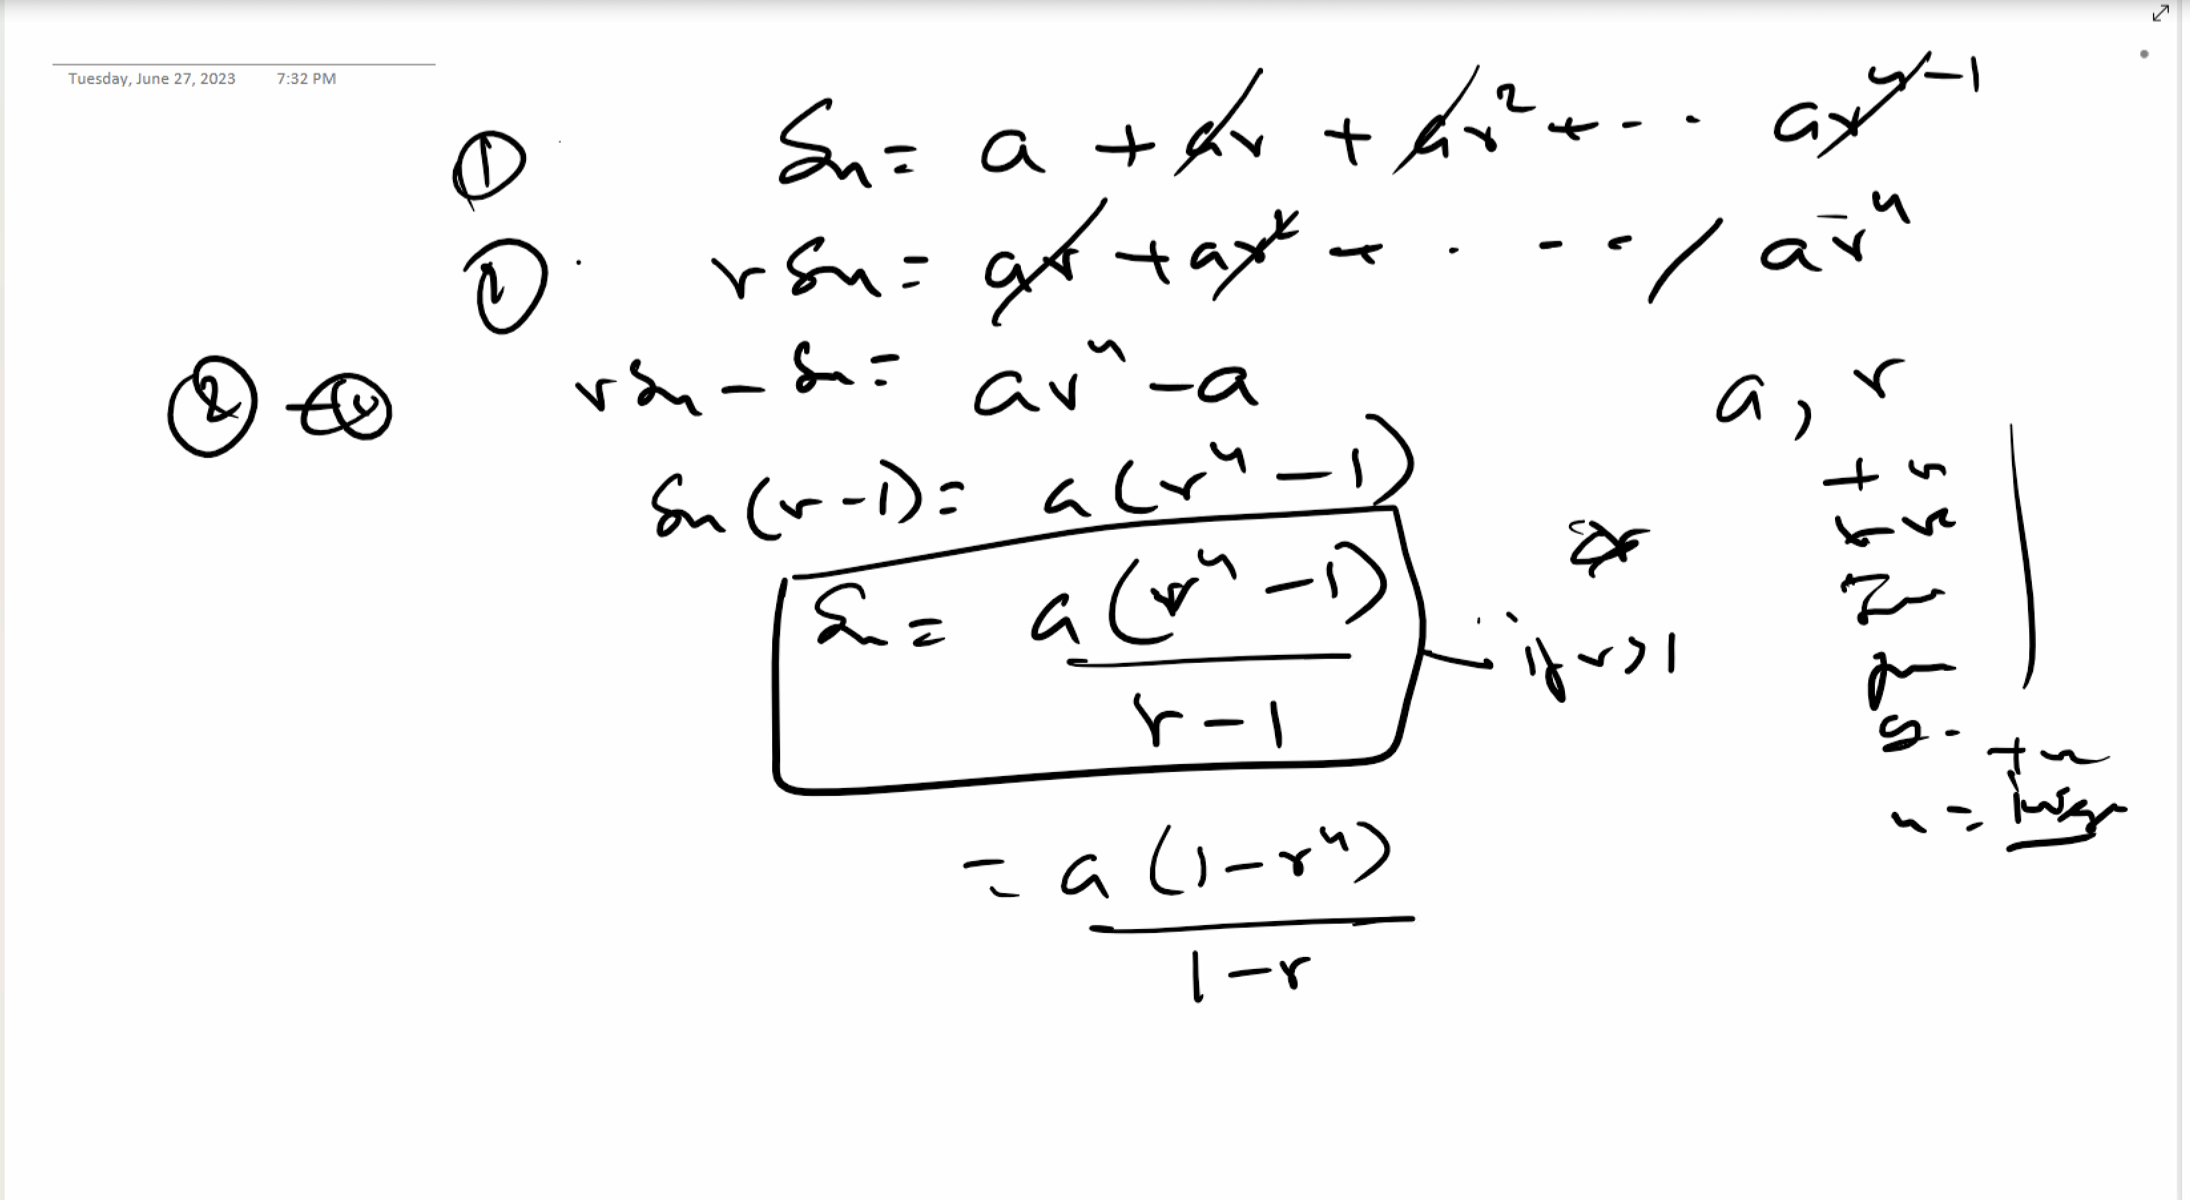 Tuesday, June 27, 2023 7:32 PM
① Sn = a + ar + ar² + - - . ar^n-1
② rSn = ar + ar² + . - - ar^n
② - ① rSn - Sn = ar^n - a
a, r
Sn (r-1) = a(r^n - 1)
+ve
-ve
Sn = a(r^n - 1) / r-1 if r>1
= a(1-r^n) / 1-r
n = +ve